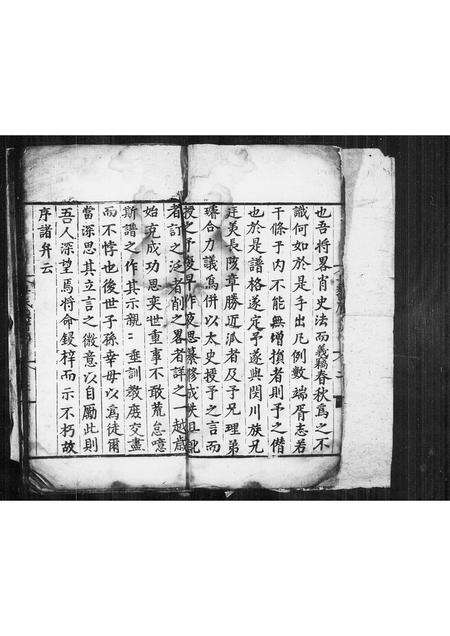 也吾将畧肖史法而義竊春秋爲之不
識何如於是手出凢例數端胥志若
干條于内不能無增損者則予之僭
也於是譜格遂定予遂與閔川族兄
廷夷長陔章勝近泒者及予兄理弟
璿合力議爲併以太史授予之言而
授之予夙早作夜思纂修成帙且訛
者訂之泛者削之畧者詳之一越歲
始克成功思奕世重事不敢荒怠噫
斯譜之作其示親垂訓教庭交盡
而不悖也後世子孫幸毋以爲徒爾
當深思其立言之微意以自勵此則
吾人深望焉将命鋟梓而示不朽故
序諸弁云